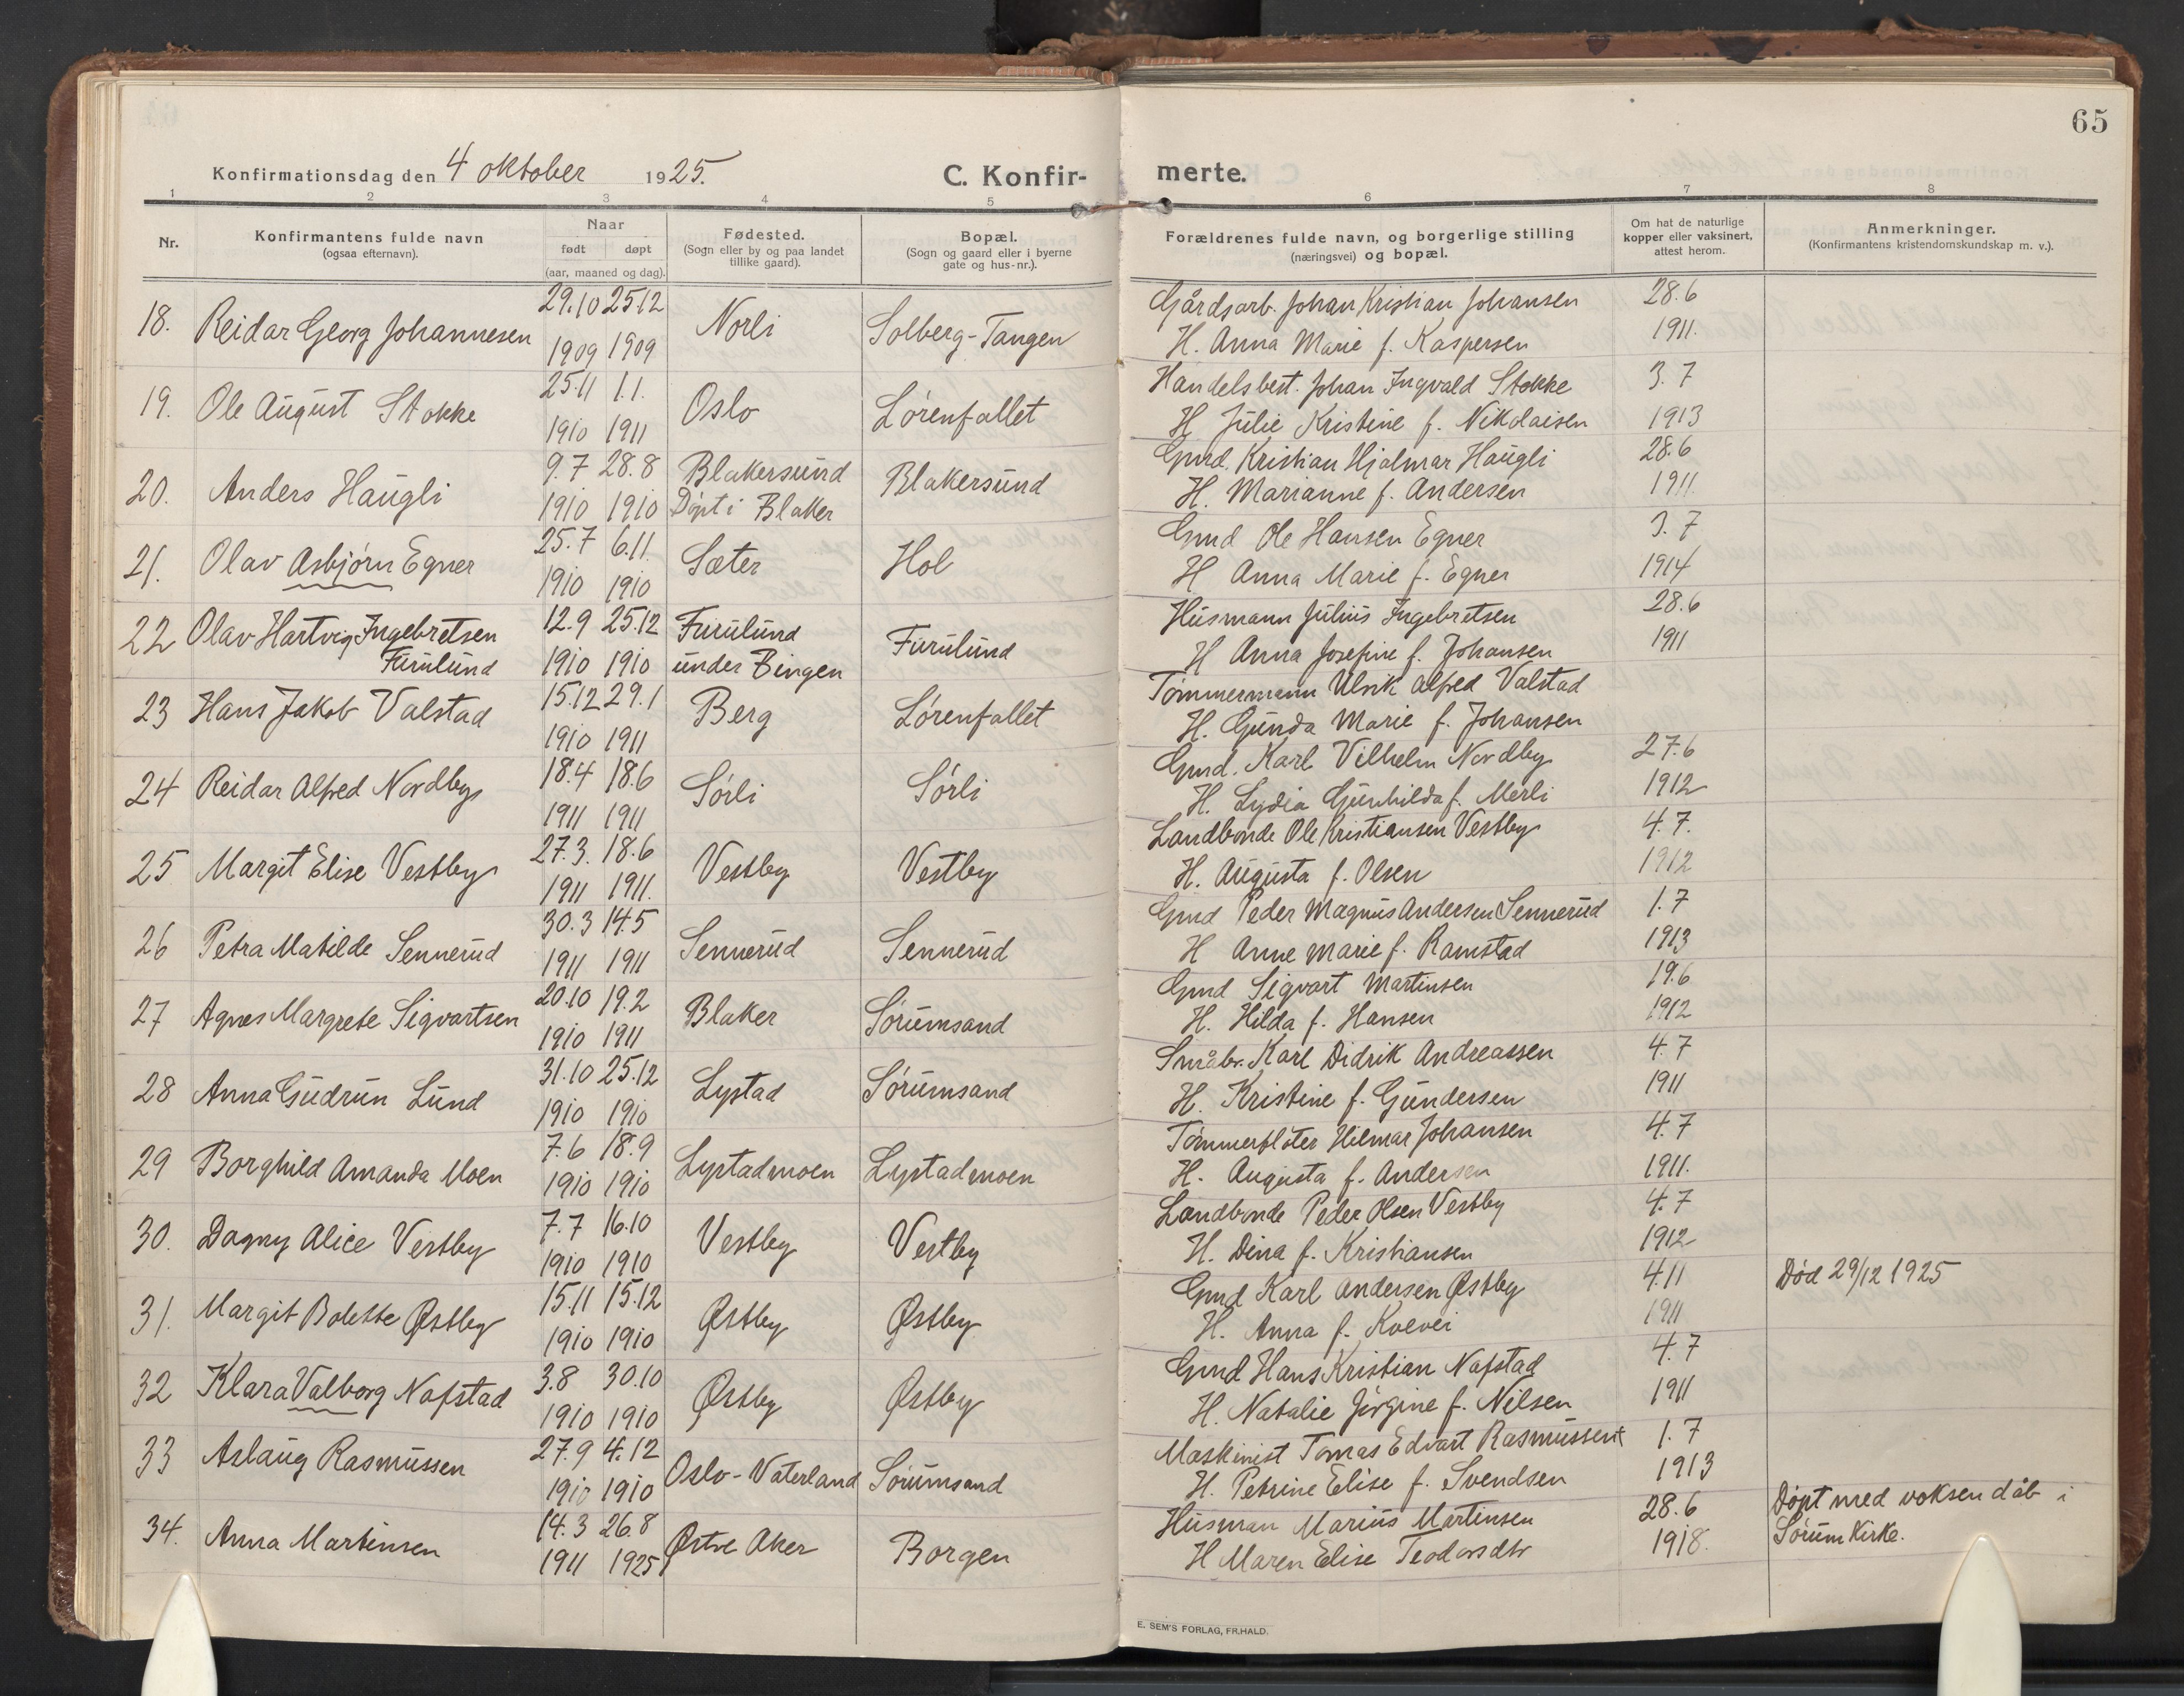 65
Konfirmationsdag den 4 oktober 1925.
C. Konfir-
merte.
1 2 3 4 5 6 7 8
Nr.
Konfirmantens fulde navn
(ogsaa efternavn).
Naar
født døpt
(aar, maaned og dag).
Fødested.
(Sogn eller by og paa landet
tillike gaard).
Bopæl.
(Sogn og gaard eller i byerne
gate og hus-nr.).
Forældrenes fulde navn, og borgerlige stilling
(næringsvei) og bopæl.
Om hat de naturlige
kopper eller vaksinert,
attest herom.
Anmerkninger.
(Konfirmantens kristendomskundskap m. v.).
18. Reidar Georg Johannesen 29.10 1909 25.12 1909 Norli Solberg-Tangen
Gårdsarb. Johan Kristian Johansen 28.6
H. Anna Marie f. Kaspersen 1911.
19. Ole August Stokke 25.11 1910 1.1. 1911 Oslo Lørenfallet
Handelsbest. Johan Ingvald Stokke 3.7
H Julie Kristine f. Nikolaisen 1913
20. Anders Haugli 9.7 1910 28.8 1910 Blakersund Døpt i Blaker Blakersund
Gmd. Kristian Hjalmar Haugli 28.6
H. Marianne f. Andersen 1911.
21. Olav Asbjørn Egner 25.7 1910 6.11. 1910 Sæter Hol
Gmd Ole Hansen Egner 3.7
H Anna Marie f. Egner 1914
22 Olav Hartvig Ingebretsen Furulund 12.9 1910 25.12 1910 Furulund under Bingen Furulund
Husmann Julius Ingebretsen 28.6
H Anna Josefine f. Johansen 1911
23 Hans Jakob Valstad 15.12 1910 29.1 1911 Berg Lørenfallet
Tømmermann Ulrik Alfred Valstad
H. Gunda Marie f. Johansen
24 Reidar Alfred Nordby 18.4 1911 18.6 1911 Sørli Sørli
Gmd. Karl Vilhelm Nordby 27.6
H. Lydia Gunhilda f. Merli 1912
25 Margit Elise Vestby 27.3. 1911 18.6 1911. Vestby Vestby
Landbonde Ole Kristiansen Vestby 4.7.
H. Augusta f. Olsen 1912
26 Petra Matilde Sennerud 30.3 1911 14.5 1911 Sennerud Sennerud
Gmd Peder Magnus Andersen Sennerud 1.7
H Anne Marie f. Ramstad 1913
27 Agnes Margrete Sigvartsen 20.10 1910 19.2 1911 Blaker Sørumsand
Gmd Sigvart Martinsen 19.6
H. Hilda f. Hansen 1912
28 Anna Gudrun Lund 31.10 1910 25.12 1910 Lystad Sørumsand
Småbr. Karl Didrik Andreassen 4.7
H. Kristine f. Gundersen 1911
29 Borghild Amanda Moen 7.6 1910 18.9 1910 Lystadmoen Lystadmoen
Tømmerfløter Hilmar Johansen 4.7
H. Augusta f. Andersen 1911.
30. Dagny Alice Vestby 7.7 1910 16.10 1910 Vestby Vestby
Landbonde Peder Olsen Vestby 4.7
H. Dina f. Kristiansen 1912
31. Margit Bolette Østby 15.11 1910 15.12 1910 Østby Østby
Gmd Karl Andersen Østby 4.11 Død 29/12 1925
H. Anna f. Kvevei 1911
32 Klara Valborg Nafstad 3.8 1910 30.10 1910 Østby Østby
Gmd Hans Kristian Nafstad 4.7
H. Natalie Jørgine f. Nilsen 1911
33 Aslaug Rasmussen 27.9 1910 4.12 1910 Oslo-Vaterland Sørumsand
Maskinist Tomas Edvart Rasmussen 1.7
H. Petrine Elise f. Svendsen 1913
34. Anna Martinsen 14.3 1911 26.8 1925 Østre Aker Borgen
Husman Marius Martinsen 28.6 Døpt med voksendåb i
H Maren Elise Teodorsdtr 1918. Sørum Kirke.
E. SEM'S FORLAG, FR.HALD.